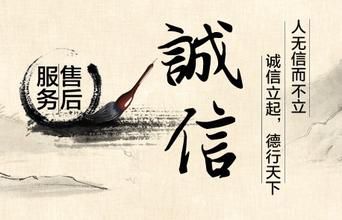 人无信而不立
诚信立起，德行天下
誠信
售后
服务